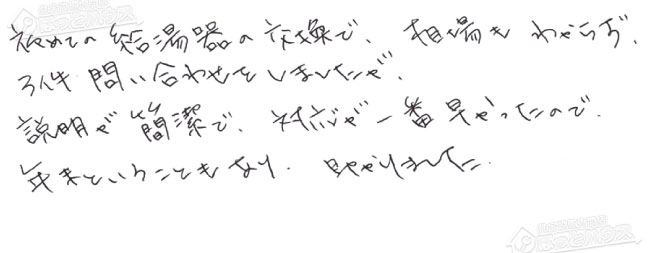 初めての給湯器の交換で、相場もわからず、
3件問い合わせをしましたが、
説明が簡潔で、対応が一番早かったので、
年末ということもあり、助かりました。